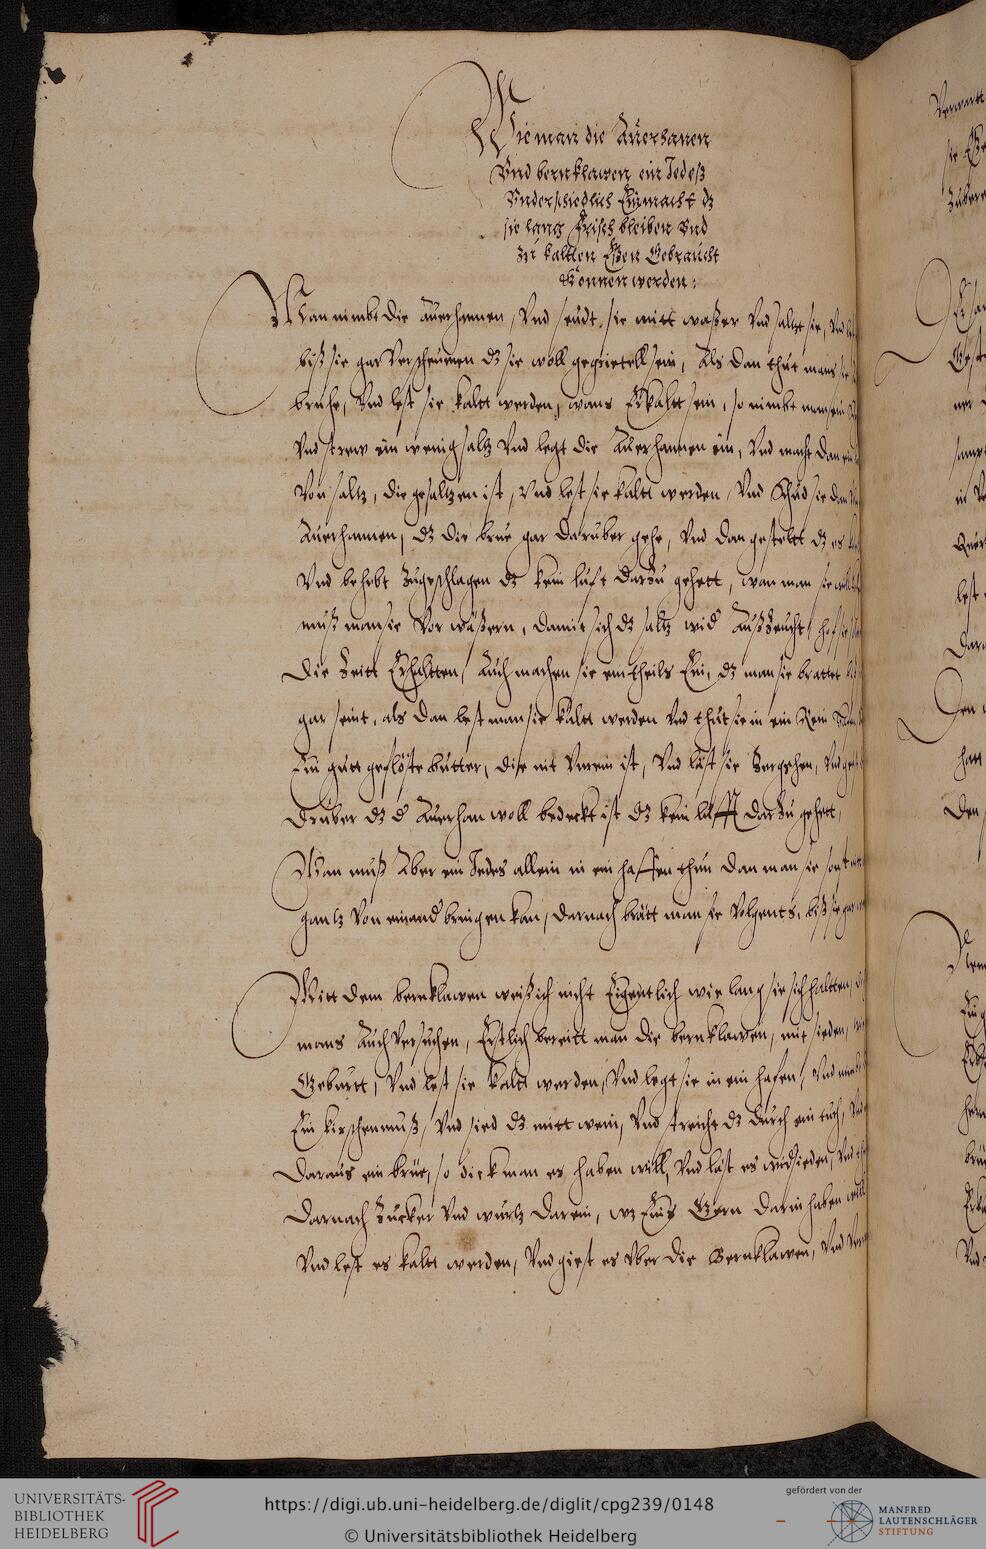 Wie man die Auerhanen
Vnd bernklawen ein Jedeß
Vnderschiedlich Einmacht dz
sie lang Frisch bleiben Vnd
zu kaltten Eßen Gebraucht
Können werden:
Man nimbt die Auerhannen, Vnd seudt sie mitt waßer Vnd saltzt sie, Vnd
biß sie gar Verscheumen dz sie woll sein, Als dan thut mans
bruhe, Vnd lest sie kaltt werden, wans Erkaltt sein, so nimbt man ein
Vnd strew ein wenig saltz Vnd legt die Auerhannen ein, Vnd macht dan ein
Von saltz, die gesaltzen ist, Vnd lest sie kaltt werden Vnd schud sie dan
Auerhannen, dz die brue gar daruber gehe, Vnd dan gesteltt dz es
Vnd behebt Zugeschlagen dz kein luft darZu gehett, wan man sie
muß man sie Vor wäßern, damit sich dz saltz wid Außzeucht,
die Zeitt Erhaltten, Auch machen sie eintheils Ein, dz man sie brattet
gar seint, als dan lest man sie kaltt werden Vnd thut sie in ein Rein
Ein gutt geflöste butter, die nit Vnrein ist, Vnd läst sie Zergehen, Vnd
druber dz d Auerhan woll bedeckt ist dz kein lufft darZu gehett,
Man muß Aber ein Jedes allein in ein haffen thun dan man sie sonst
gantz Von einand bringen kan, darnach brätt man sie Volgents, biß sie gar
Mitt dem bernklawen weiß ich nicht Eigentlich wie lang sie sich haltten,
mans Auch Versuchen, Erstlich bereitt man die bernklawen, mit sieden,
Geburtt, Vnd lest sie kaltt werden, Vnd legt sie in ein hafen, Vnd
Ein kirschenmuß, Vnd sied dz mitt wein, Vnd streicht dz durch ein tuch,
daraus ein brüe, so dick man es haben will, Vnd läst es widsieden,
darnach Zucker Vnd wurtz darein, wz Eins Gern darin haben will
Vnd lest es kaltt werden, Vnd giest es Vber die Bernklawen, Vnd
UNIVERSITÄTS-
BIBLIOTHEK
HEIDELBERG
https://digi.ub.uni-heidelberg.de/diglit/cpg239/0148
© Universitätsbibliothek Heidelberg
gefördert von der
MANFRED
LAUTENSCHLÄGER
STIFTUNG